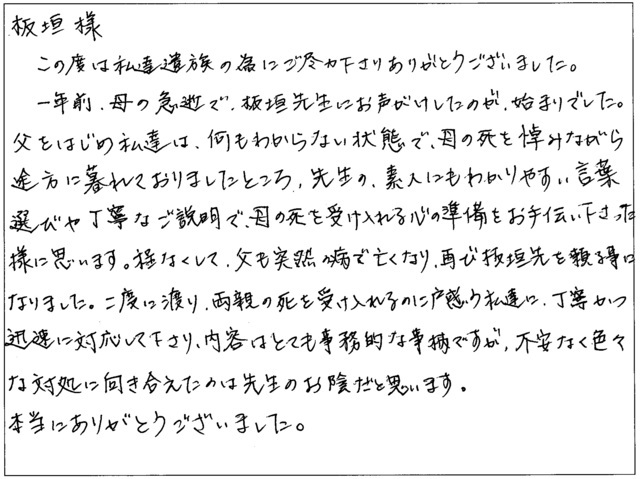 板垣様
この度は私達遺族の為にご尽力下さりありがとうございました。
一年前、母の急逝で、板垣先生にお声がけしたのが、始まりでした。
父をはじめ私達は、何もわからない状態で、母の死を悼みながら
途方に暮れておりましたところ、先生の、素人にもわかりやすい言葉
選びや丁寧なご説明で、母の死を受け入れる心の準備をお手伝い下さった
様に思います。程なくして、父も突然の病で亡くなり、再び板垣先を頼る事に
なりました。二度に渡り、両親の死を受け入れるのに戸惑う私達に、丁寧かつ
迅速に対応して下さり、内容はとても事務的な事柄ですが、不安なく色々
な対処に向き合えたのは先生のお陰だと思います。
本当にありがとうございました。